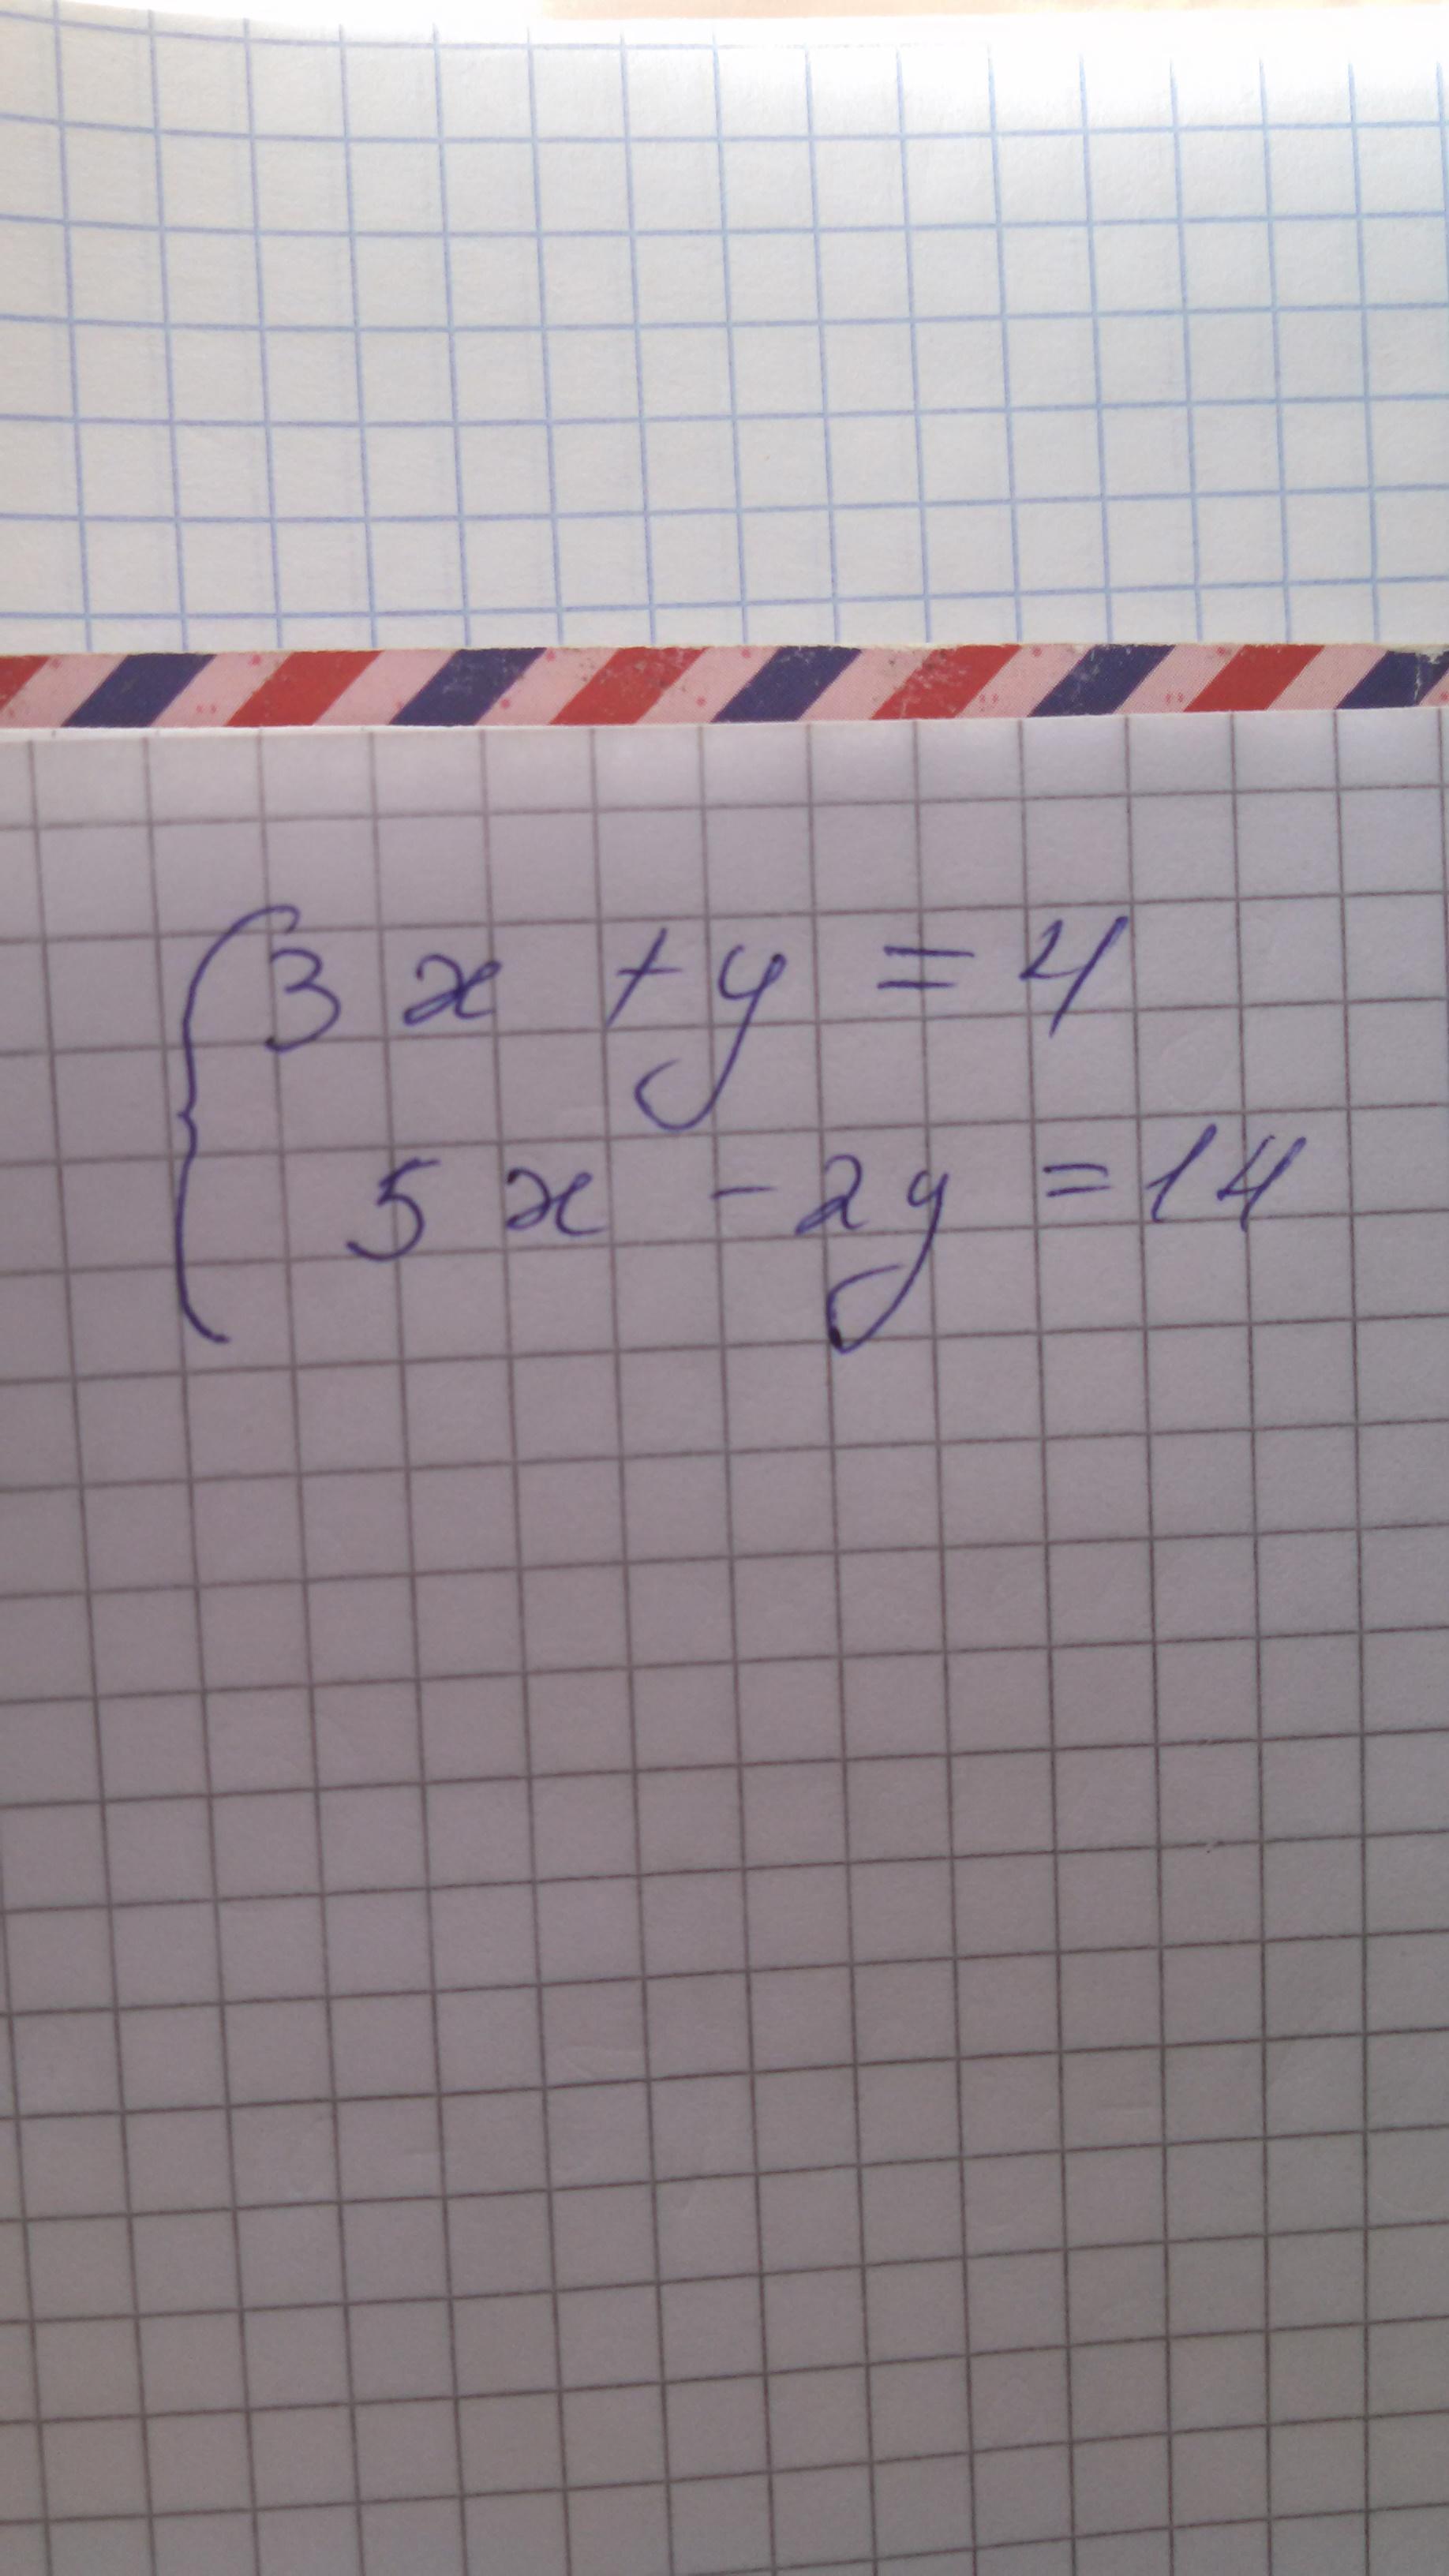 3x + y = 4
5x - 2y = 14